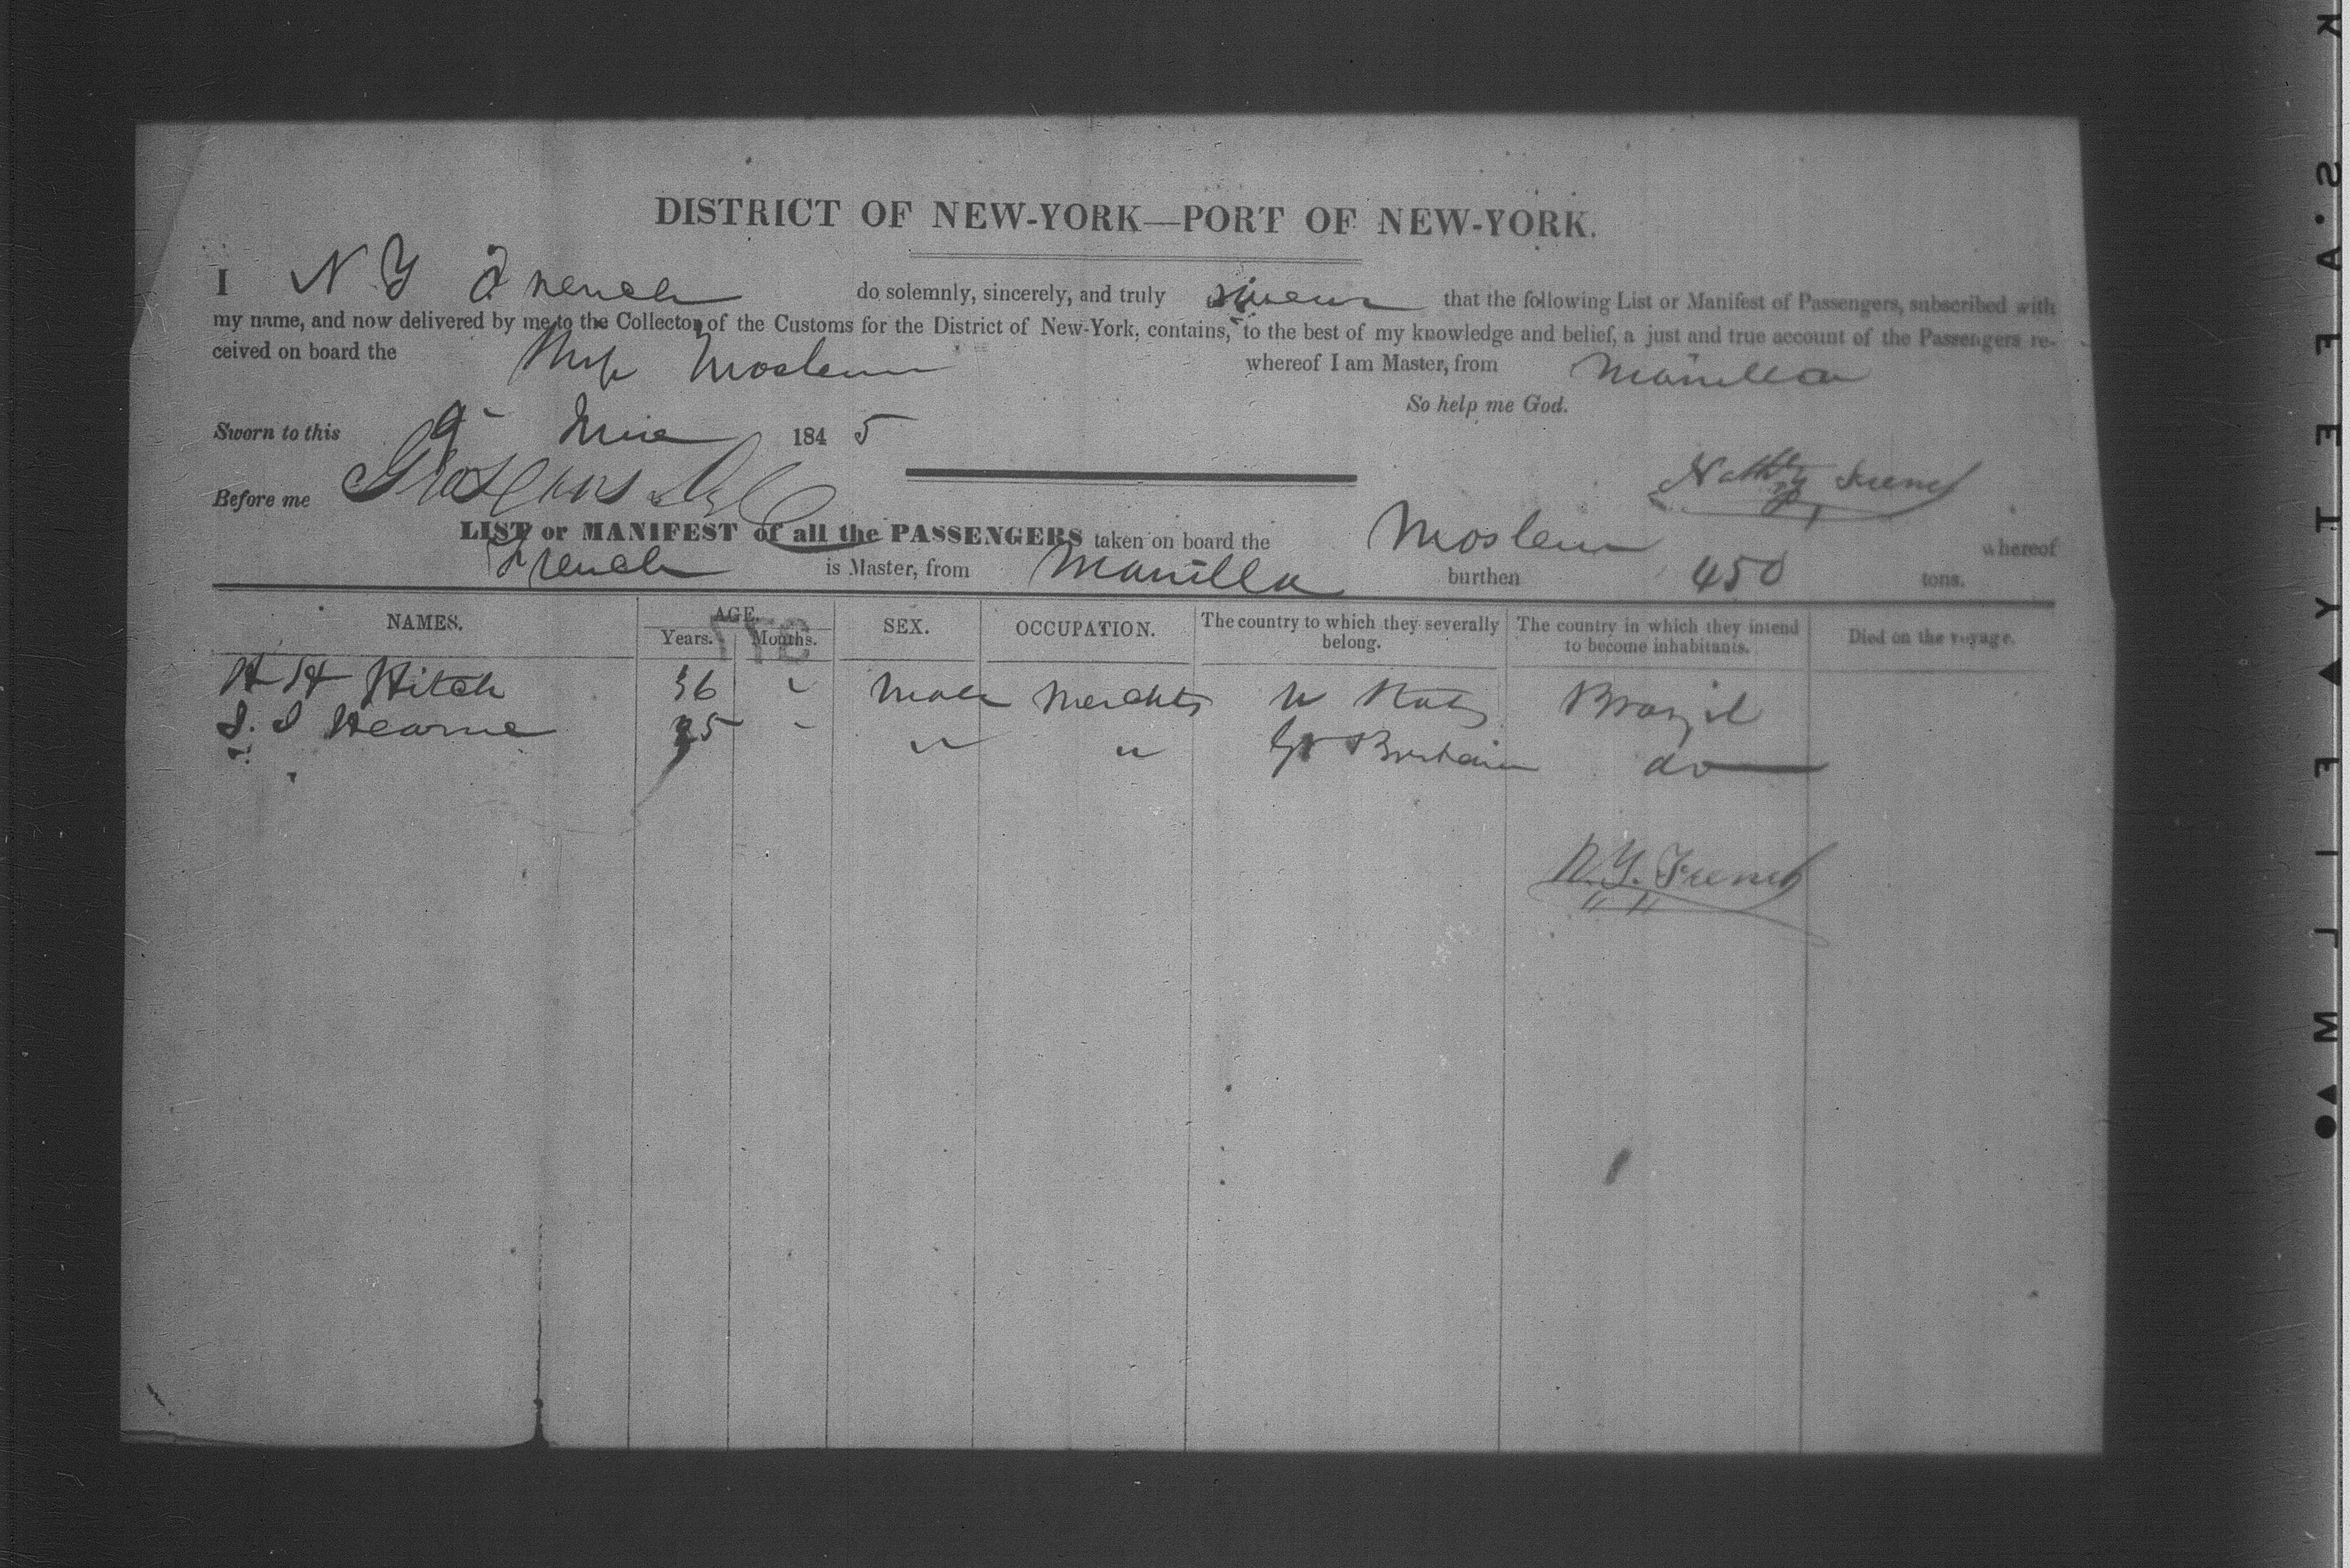 DISTRICT OF NEW-YORK—PORT OF NEW-YORK.
I N Y French do solemnly, sincerely, and truly swear that the following List or Manifest of Passengers, subscribed with
my name, and now delivered by me to the Collector of the Customs for the District of New-York, contains, to the best of my knowledge and belief, a just and true account of the Passengers re-
ceived on board the Ship Moslem whereof I am Master, from Manilla
So help me God.
Sworn to this 9 June 1845
Before me
French
LIST or MANIFEST of all the PASSENGERS taken on board the Moslem whereof
French is Master, from Manilla burthen 450 tons.
NAMES. AGE. Years. Months. SEX. OCCUPATION. The country to which they severally belong. The country in which they intend to become inhabitants. Died on the voyage.
H H Hitch 36 " Male Merchts U States Brazil
Hearne 25 " " " Gt Britain do
N. Y. French